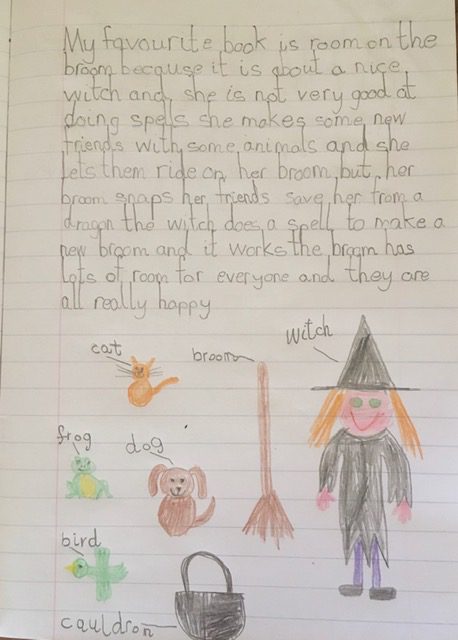 My favourite book is room on the
broom because it is about a nice
witch and she is not very good at
doing spells she makes some new
friends with some animals and she
lets them ride on her broom but her
broom snaps her friends save her from a
dragon the witch does a spell to make a
new broom and it works the broom has
lots of room for everyone and they are
all really happy
cat
broom
witch
frog
dog
bird
cauldron